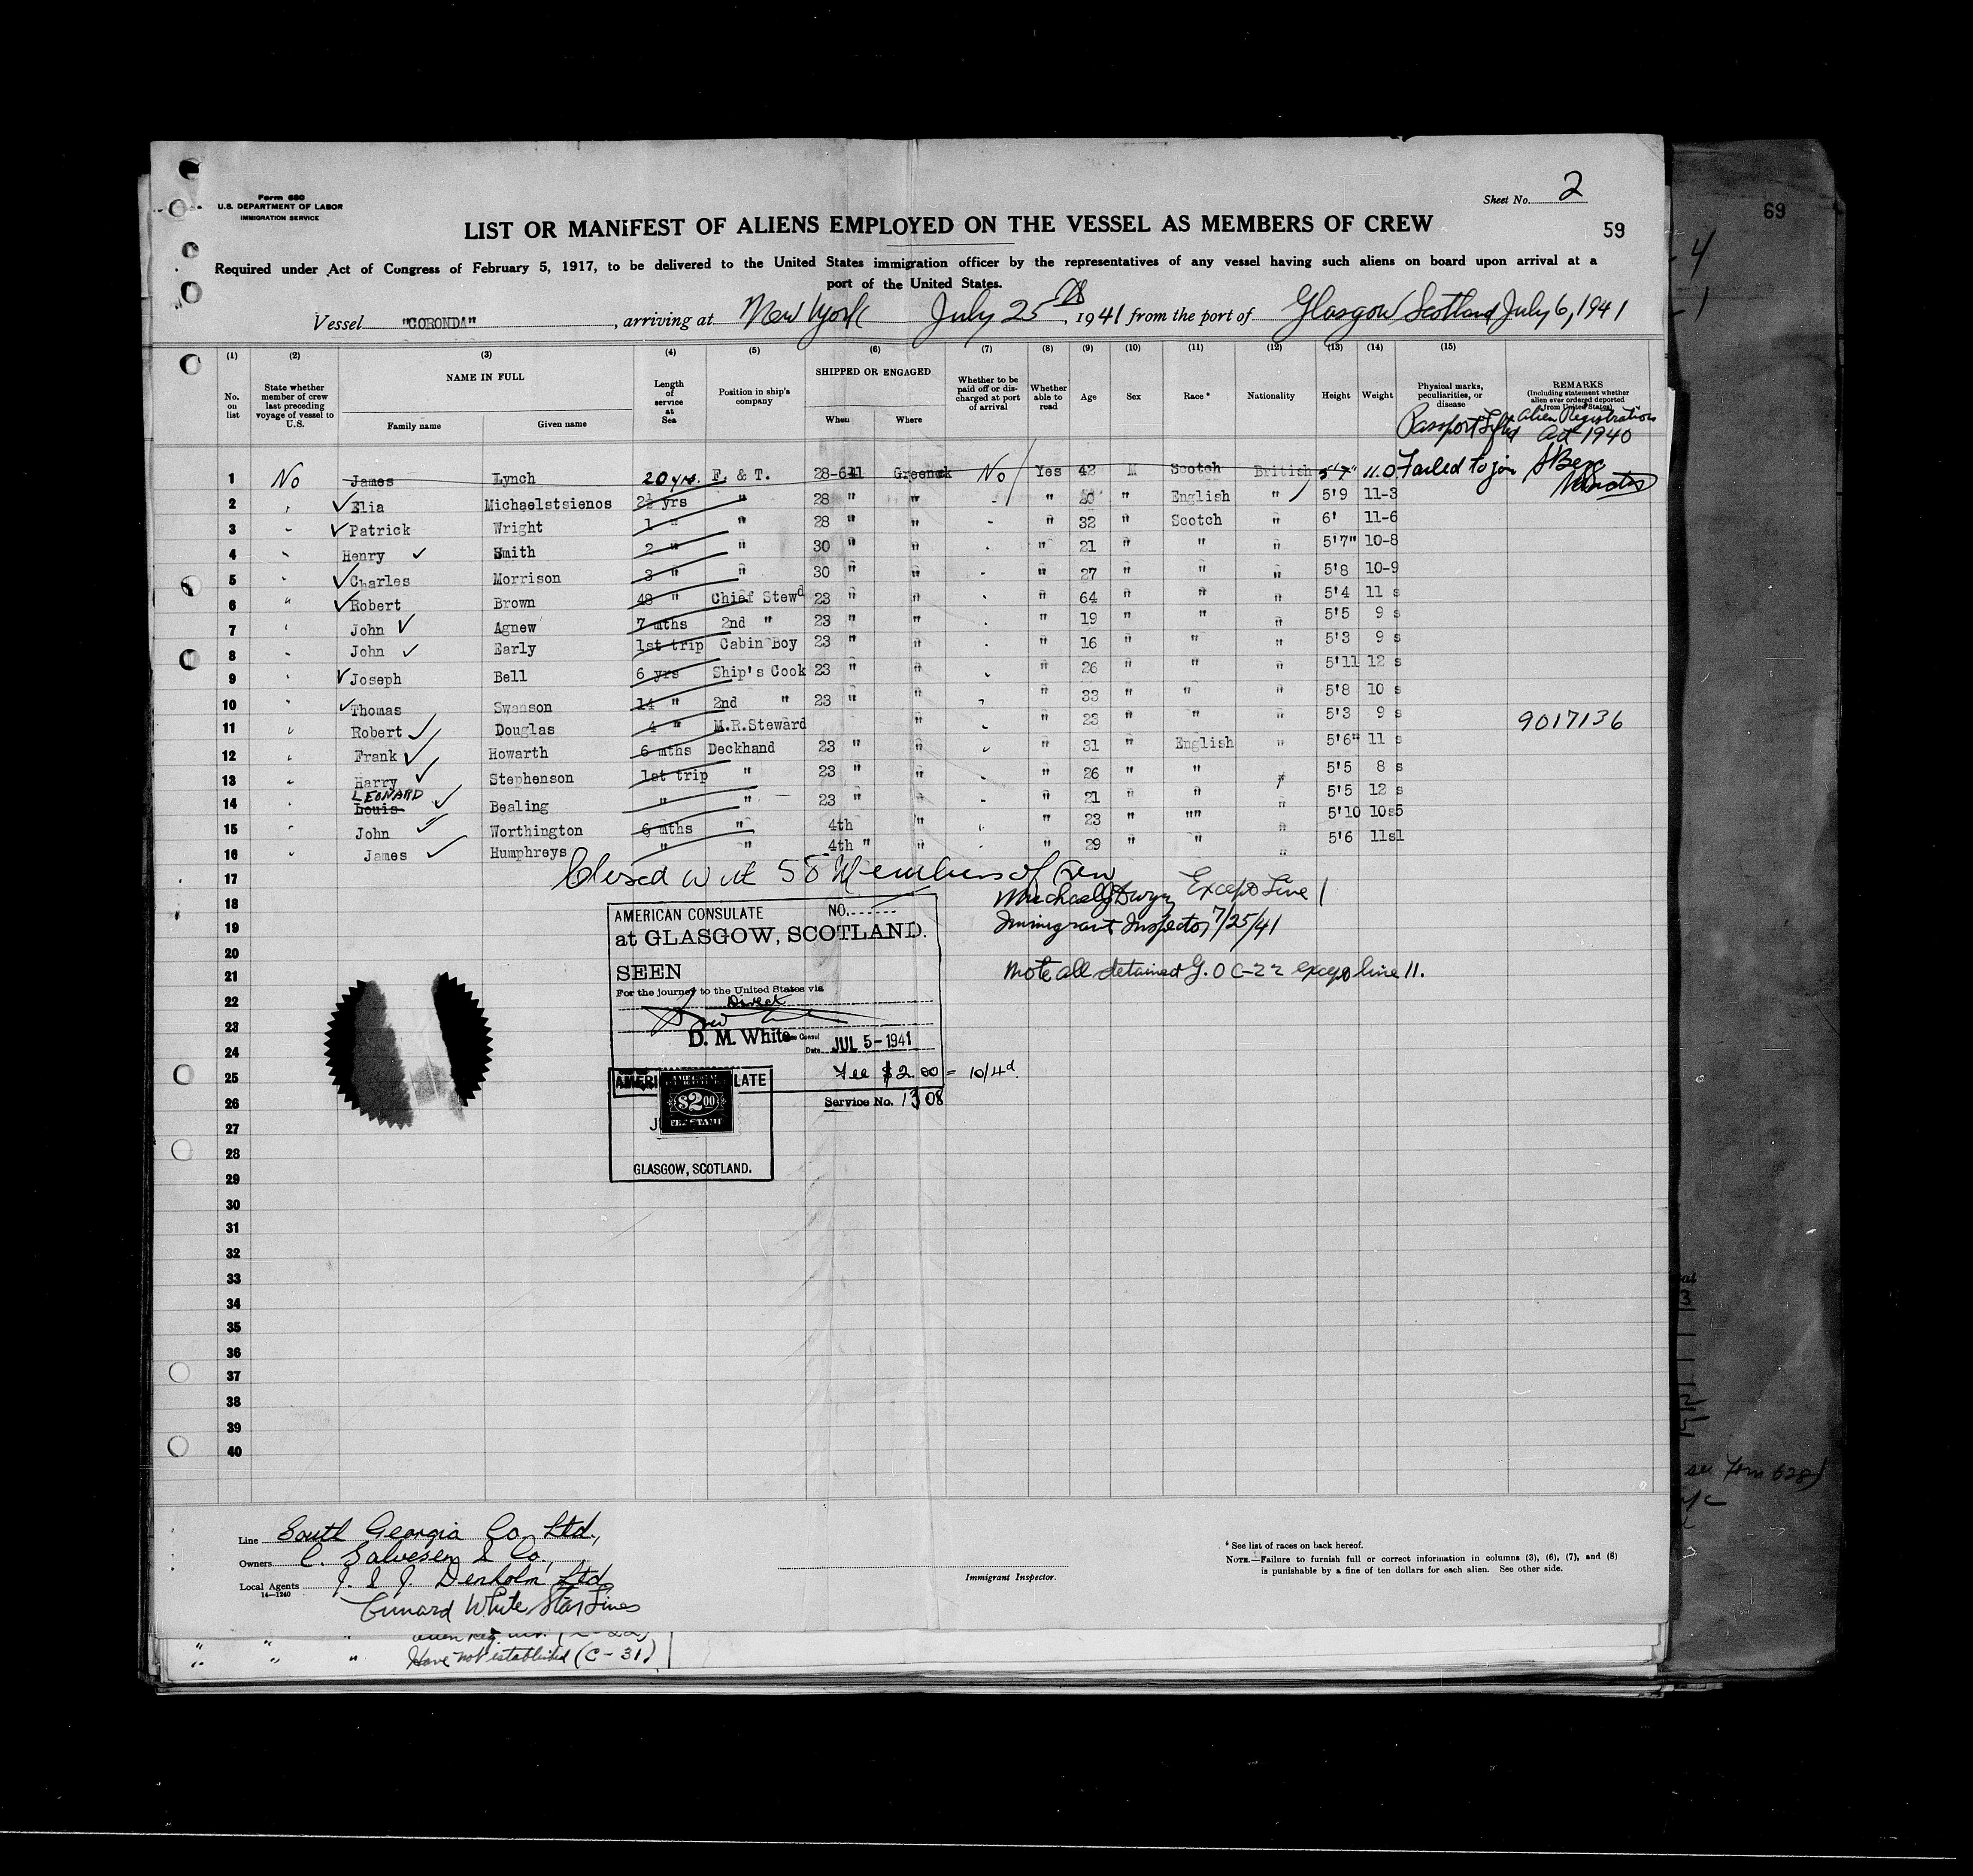 Form 680
U.S. DEPARTMENT OF LABOR
IMMIGRATION SERVICE
Sheet No. 2
59
69
LIST OR MANIFEST OF ALIENS EMPLOYED ON THE VESSEL AS MEMBERS OF CREW
Required under Act of Congress of February 5, 1917, to be delivered to the United States immigration officer by the representatives of any vessel having such aliens on board upon arrival at a
port of the United States.
Vessel "CORONDA", arriving at New York July 25th, 1941 from the port of Glasgow Scotland July 6, 1941
(1) (2) (3) (4) (5) (6) (7) (8) (9) (10) (11) (12) (13) (14) (15)
No. on list
State whether member of crew last preceding voyage of vessel to U.S.
NAME IN FULL
Family name Given name
Length of service at Sea
Position in ship's company
SHIPPED OR ENGAGED
When Where
Whether to be paid off or discharged at port of arrival
Whether able to read
Age Sex Race * Nationality Height Weight
Physical marks, peculiarities, or disease
REMARKS
(Including statement whether alien ever ordered deported from United States)
Passport Lifted Alien Registration
Act 1940
1 No James Lynch 20 yrs. F. & T. 28-6-41 Greenock No Yes 42 M Scotch British 5'7" 11.0 Failed to join
2 " Elia Michaelstsienos 2½ yrs " 28 " " - " 20 " English " 5'9 11-3
3 " Patrick Wright 1 " " 28 " " - " 32 " Scotch " 6' 11-6
4 " Henry Smith 2 " " 30 " " - " 21 " " " 5'7" 10-8
5 " Charles Morrison 3 " " 30 " " - " 27 " " " 5'8 10-9
6 " Robert Brown 48 " Chief Stewd 23 " " - " 64 " " " 5'4 11 s
7 " John Agnew 7 mths 2nd " 23 " " - " 19 " " " 5'5 9 s
8 " John Early 1st trip Cabin Boy 23 " " - " 16 " " " 5'3 9 s
9 " Joseph Bell 6 yrs Ship's Cook 23 " " - " 26 " " " 5'11 12 s
10 " Thomas Swanson 14 " 2nd " 23 " " " 33 " " " 5'8 10 s
11 " Robert Douglas 4 " M.R.Steward " - " 23 " " " 5'3 9 s 9017136
12 " Frank Howarth 6 mths Deckhand 23 " " " " 31 " English " 5'6" 11 s
13 " Harry Stephenson 1st trip " 23 " " - " 26 " " " 5'5 8 s
14 " LEONARD Louis Bealing " " 23 " " - " 21 " " " 5'5 12 s
15 " John Worthington 6 mths " 4th " " " 23 " "" " 5'10 10s5
16 " James Humphreys " " 4th " " " " 29 " " " 5'6 11s1
17 Closed with 58 Members of Crew
18 Except Line 1
19 Immigrant Inspector 7/25/41
20
21 Note all detained G.O C-22 except line 11.
22
23
24
25
26
27
28
29
30
31
32
33
34
35
36
37
38
39
40
AMERICAN CONSULATE NO.
at GLASGOW, SCOTLAND.
SEEN
For the journey to the United States via
Direct
D. M. White
Consul
Date JUL 5-1941
Fee $2.00 = 10/4d.
Service No. 1308
$2.00
FEE STAMP
GLASGOW, SCOTLAND.
Line South Georgia Co. Ltd.,
Owners C. Salvesen & Co,
Local Agents J. & J. Denholm Ltd,
14-1240
Cunard White Star Lines
Immigrant Inspector.
* See list of races on back hereof.
NOTE.—Failure to furnish full or correct information in columns (3), (6), (7), and (8)
is punishable by a fine of ten dollars for each alien. See other side.
Have not established (C-31)